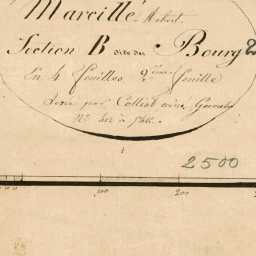 Marcillé Robert
Section B dite du Bourg 2
En 4 feuilles 2ème feuille
Levée par Colliat aîné, Géomètre
Nos
2500
100 200